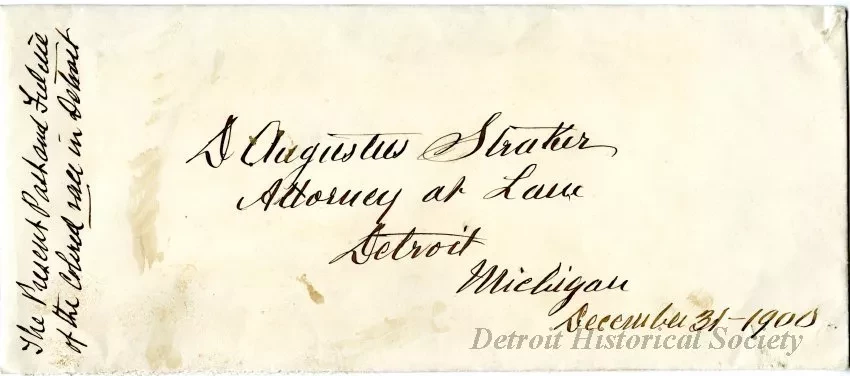 The Present Past and Future
of the Colored race in Detroit
D Augustus Straker
Attorney at Law
Detroit
Michigan
December 31-1900
Detroit Historical Society